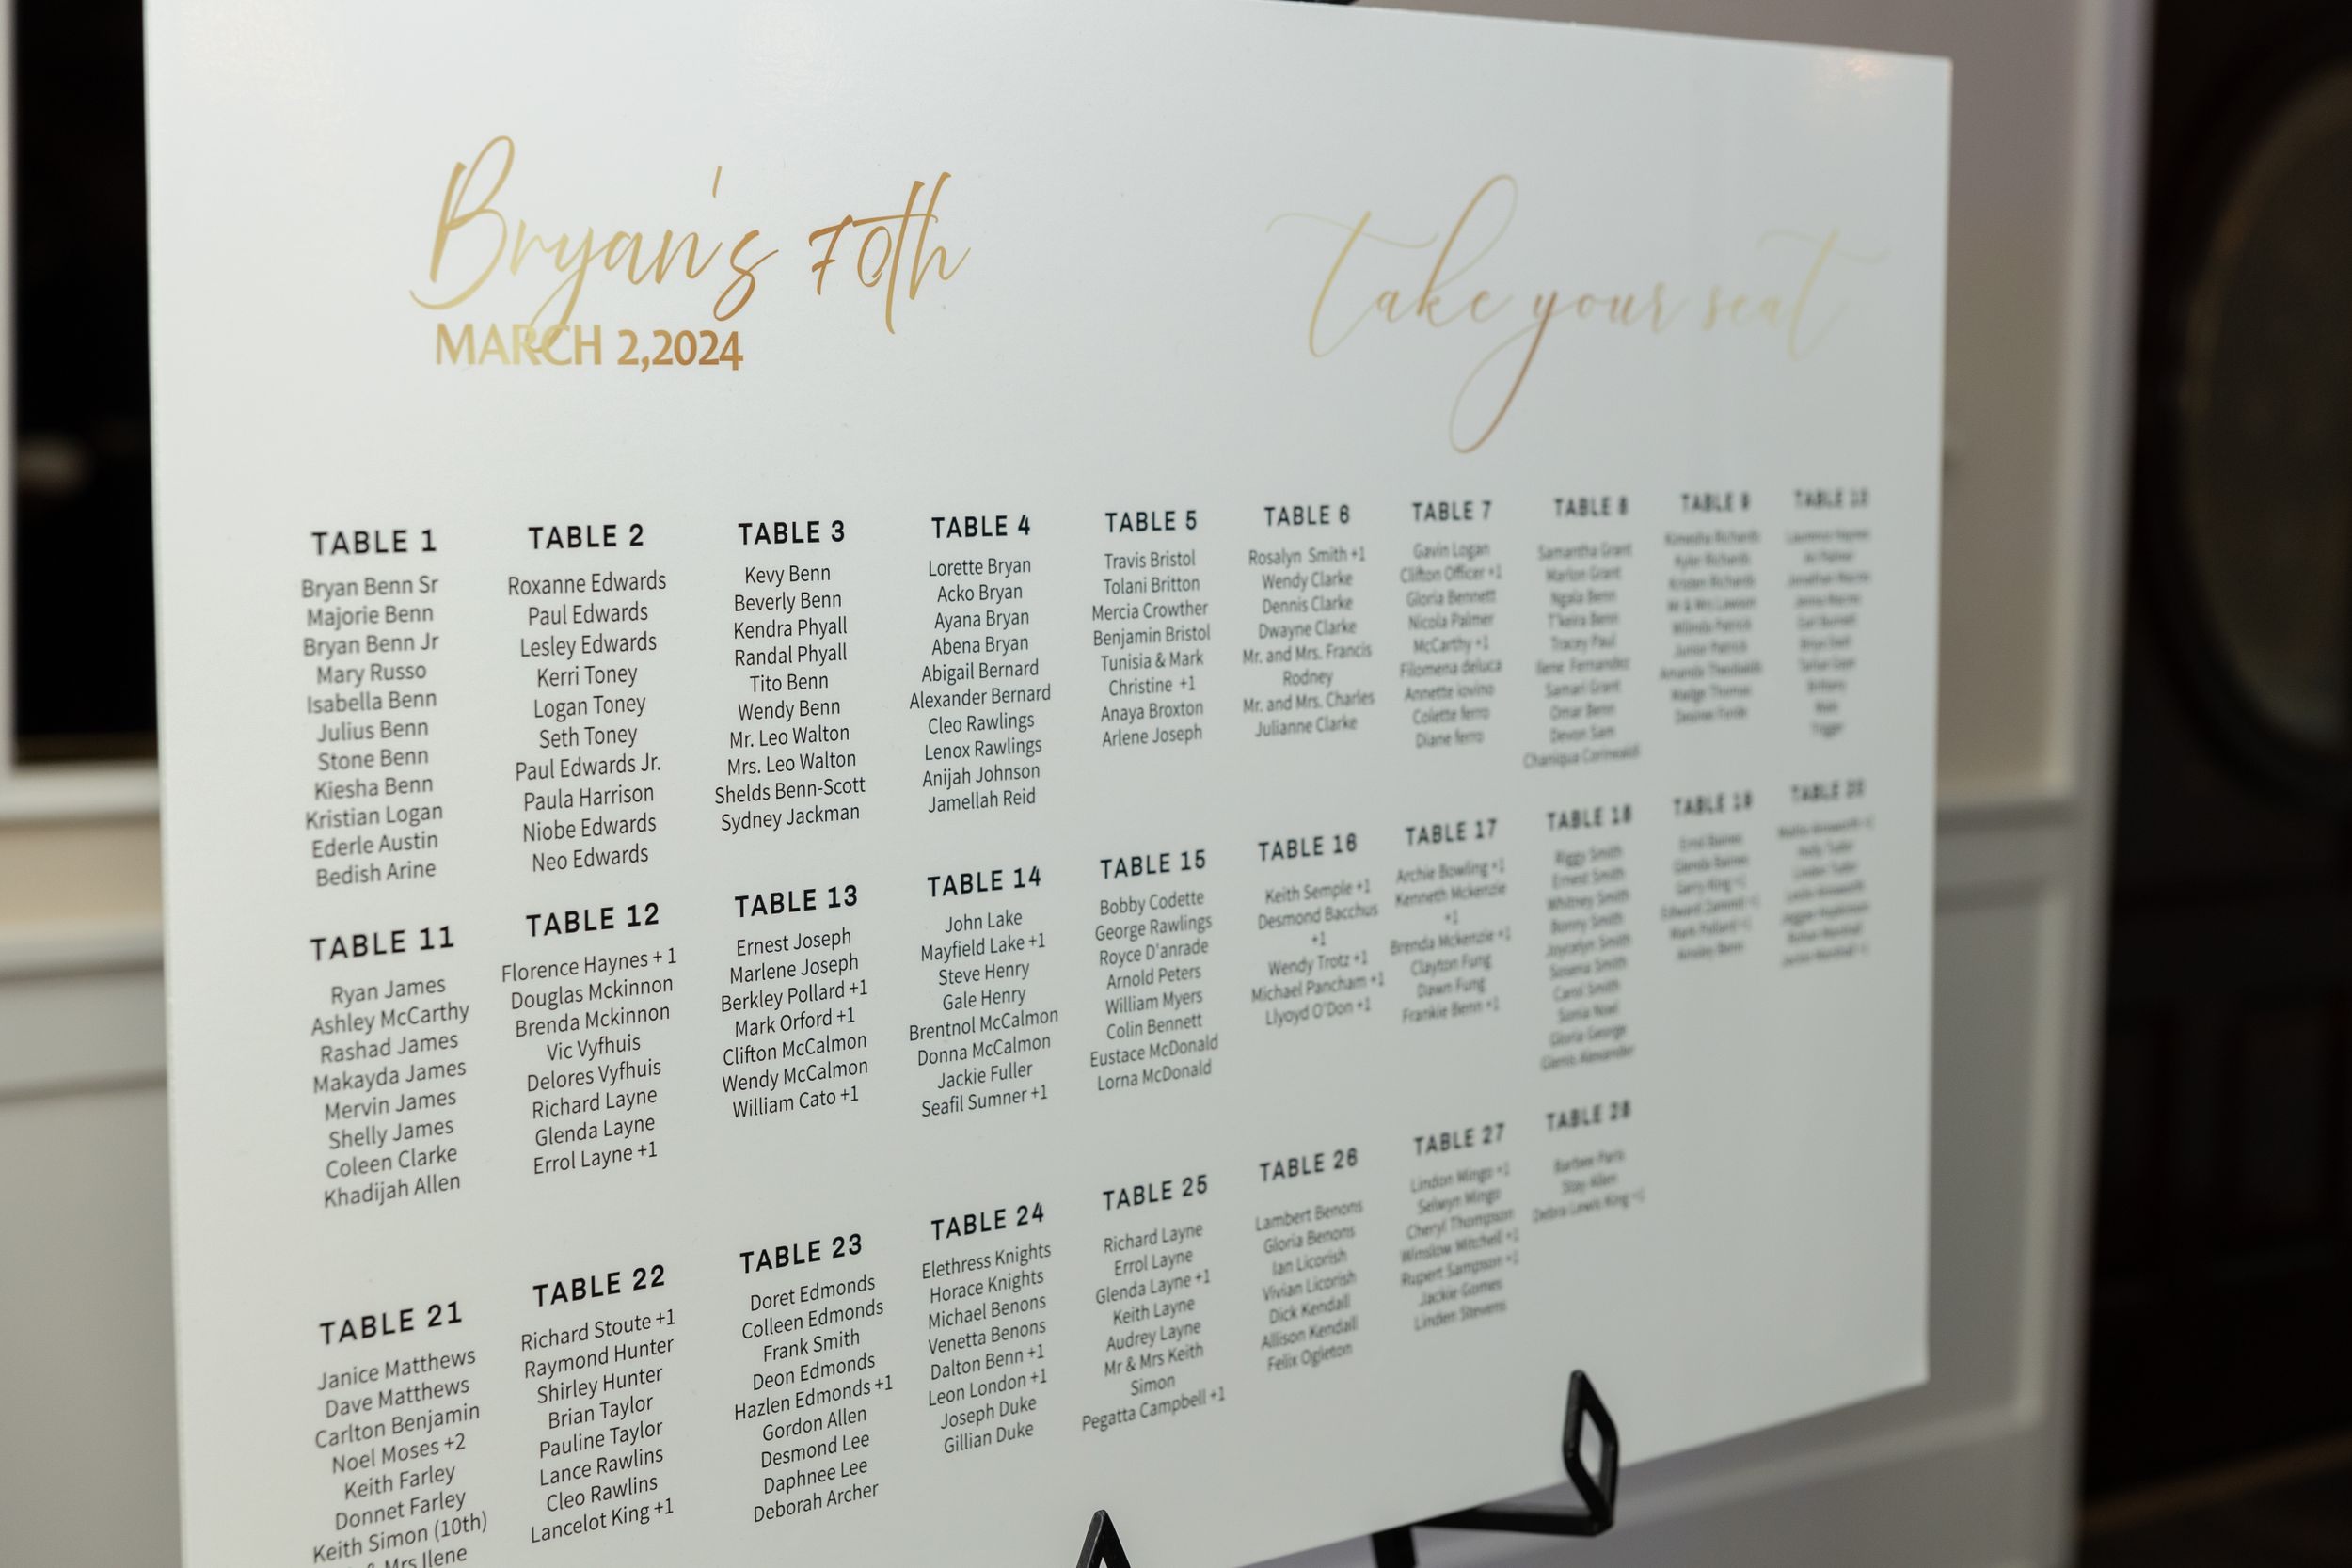 Bryan's 70th
MARCH 2,2024
take your seat
TABLE 1
Bryan Benn Sr
Majorie Benn
Bryan Benn Jr
Mary Russo
Isabella Benn
Julius Benn
Stone Benn
Kiesha Benn
Kristian Logan
Ederle Austin
Bedish Arine
TABLE 2
Roxanne Edwards
Paul Edwards
Lesley Edwards
Kerri Toney
Logan Toney
Seth Toney
Paul Edwards Jr.
Paula Harrison
Niobe Edwards
Neo Edwards
TABLE 3
Kevy Benn
Beverly Benn
Kendra Phyall
Randal Phyall
Tito Benn
Wendy Benn
Mr. Leo Walton
Mrs. Leo Walton
Shelds Benn-Scott
Sydney Jackman
TABLE 4
Lorette Bryan
Acko Bryan
Ayana Bryan
Abena Bryan
Abigail Bernard
Alexander Bernard
Cleo Rawlings
Lenox Rawlings
Anijah Johnson
Jamellah Reid
TABLE 5
Travis Bristol
Tolani Britton
Mercia Crowther
Benjamin Bristol
Tunisia & Mark
Christine +1
Anaya Broxton
Arlene Joseph
TABLE 6
Rosalyn Smith +1
Wendy Clarke
Dennis Clarke
Dwayne Clarke
Mr. and Mrs. Francis
Rodney
Mr. and Mrs. Charles
Julianne Clarke
TABLE 7
Gavin Logan
Clifton Officer +1
Gloria Bennett
Nicola Palmer
McCarthy +1
Filomena deluca
Annette iovino
Colette ferro
Diane ferro
TABLE 8
Samantha Grant
Marlon Grant
Ngala Benn
T'keira Benn
Tracey Paul
Ilene Fernandez
Samari Grant
Omar Benn
Devon Sam
Chaniqua Corinwaldi
TABLE 9
Kimesha Richards
Kyler Richards
Kristen Richards
Mr & Mrs Lawson
Wilinda Patrick
Junior Patrick
Amanda Theobalds
Madge Thomas
Desiree Forde
TABLE 10
TABLE 11
Ryan James
Ashley McCarthy
Rashad James
Makayda James
Mervin James
Shelly James
Coleen Clarke
Khadijah Allen
TABLE 12
Florence Haynes + 1
Douglas Mckinnon
Brenda Mckinnon
Vic Vyfhuis
Delores Vyfhuis
Richard Layne
Glenda Layne
Errol Layne +1
TABLE 13
Ernest Joseph
Marlene Joseph
Berkley Pollard +1
Mark Orford +1
Clifton McCalmon
Wendy McCalmon
William Cato +1
TABLE 14
John Lake
Mayfield Lake +1
Steve Henry
Gale Henry
Brentnol McCalmon
Donna McCalmon
Jackie Fuller
Seafil Sumner +1
TABLE 15
Bobby Codette
George Rawlings
Royce D'anrade
Arnold Peters
William Myers
Colin Bennett
Eustace McDonald
Lorna McDonald
TABLE 16
Keith Semple +1
Desmond Bacchus
+1
Wendy Trotz +1
Michael Pancham +1
Llyoyd O'Don +1
TABLE 17
Archie Bowling +1
Kenneth Mckenzie
+1
Brenda Mckenzie +1
Clayton Fung
Dawn Fung
Frankie Benn +1
TABLE 18
Riggy Smith
Ernest Smith
Whitney Smith
Bonny Smith
Joycelyn Smith
Smith
Carol Smith
Sonia Noel
Gloria George
Glenis Alexander
TABLE 19
TABLE 20
TABLE 21
Janice Matthews
Dave Matthews
Carlton Benjamin
Noel Moses +2
Keith Farley
Donnet Farley
Keith Simon (10th)
& Mrs Ilene
TABLE 22
Richard Stoute +1
Raymond Hunter
Shirley Hunter
Brian Taylor
Pauline Taylor
Lance Rawlins
Cleo Rawlins
Lancelot King +1
TABLE 23
Doret Edmonds
Colleen Edmonds
Frank Smith
Deon Edmonds
Hazlen Edmonds +1
Gordon Allen
Desmond Lee
Daphnee Lee
Deborah Archer
TABLE 24
Elethress Knights
Horace Knights
Michael Benons
Venetta Benons
Dalton Benn +1
Leon London +1
Joseph Duke
Gillian Duke
TABLE 25
Richard Layne
Errol Layne
Glenda Layne +1
Keith Layne
Audrey Layne
Mr & Mrs Keith
Simon
Pegatta Campbell +1
TABLE 26
Lambert Benons
Gloria Benons
Ian Licorish
Vivian Licorish
Dick Kendall
Allison Kendall
Felix Ogleton
TABLE 27
Lindon Mingo +1
Selwyn Mingo
Cheryl Thompson
Winslow Witchell +1
Rupert Sampson +1
Jackie Gomes
Linden Stevens
TABLE 28
Barbee Paris
Stay Allen
Debra Lewis King +1